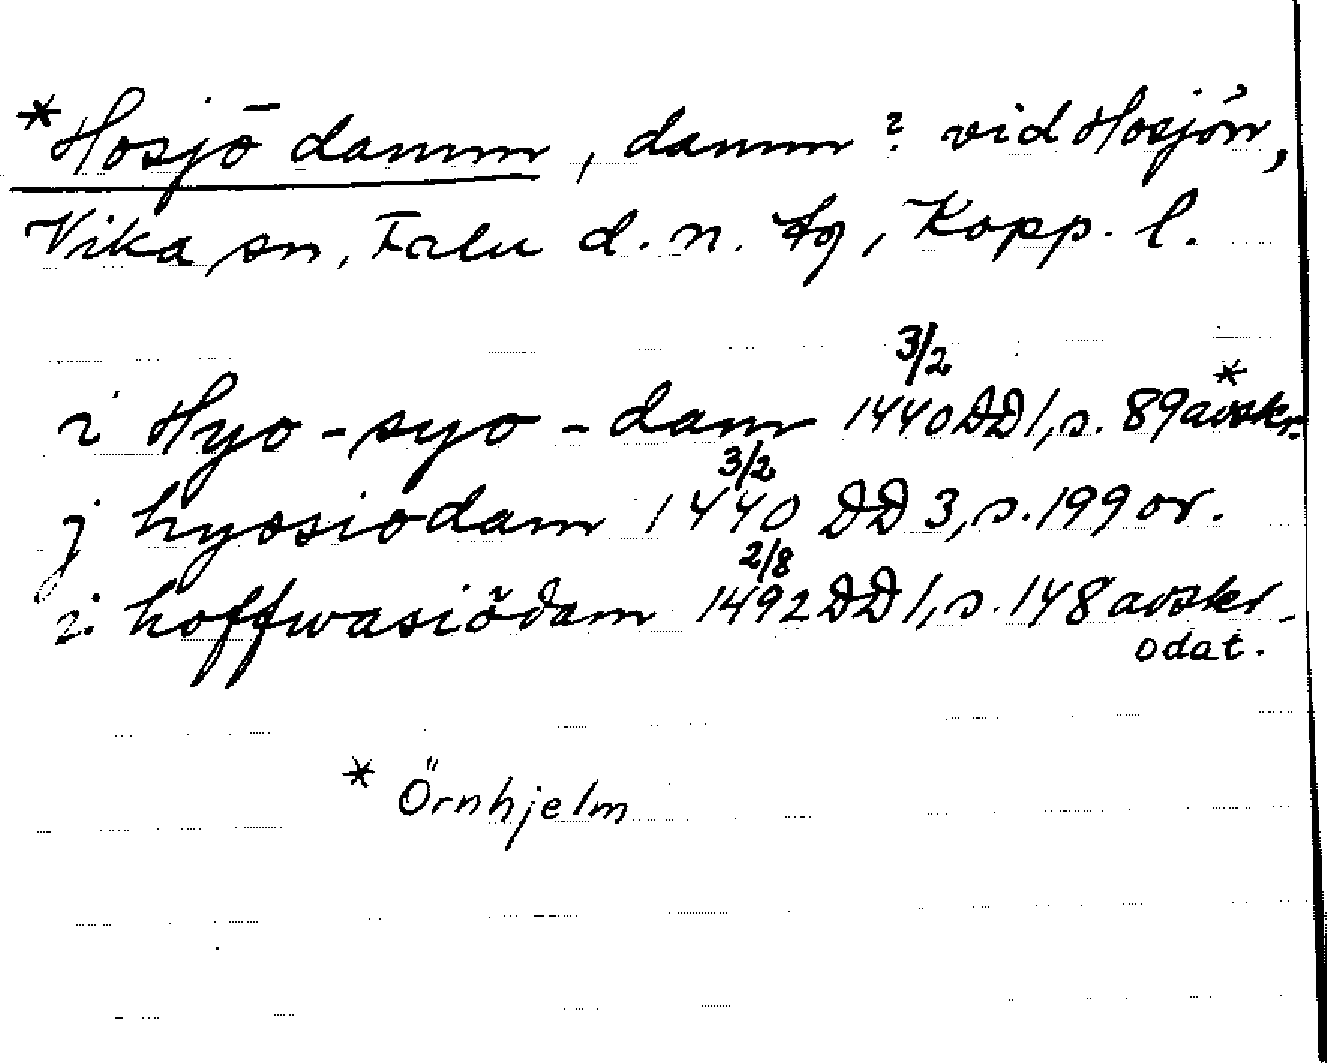 *Hosjö damm, damm? vid Hosjön,
Vika sn, Falu d. n. tg, Kopp. l.
i Hyo-syo-dam 3/2 1440 DD 1, s. 89 avskr.*
j hyosiodam 3/2 1440 DD 3, s. 199 or.
i hoffwasiödam 2/8 1492 DD 1, s. 148 avskr.
odat.
* Örnhjelm